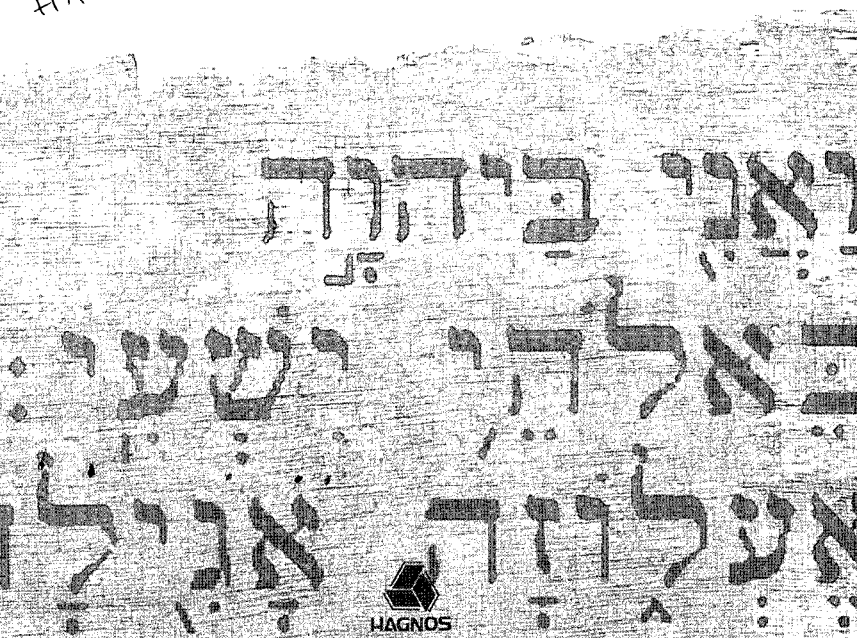 וַאֲנִ֖י בַּיהוָ֣ה
בֵּאלֹהֵ֥י יִשְׁעִֽי׃
אֶעְל֑וֹזָה אָגִ֖ילָה
HAGNOS